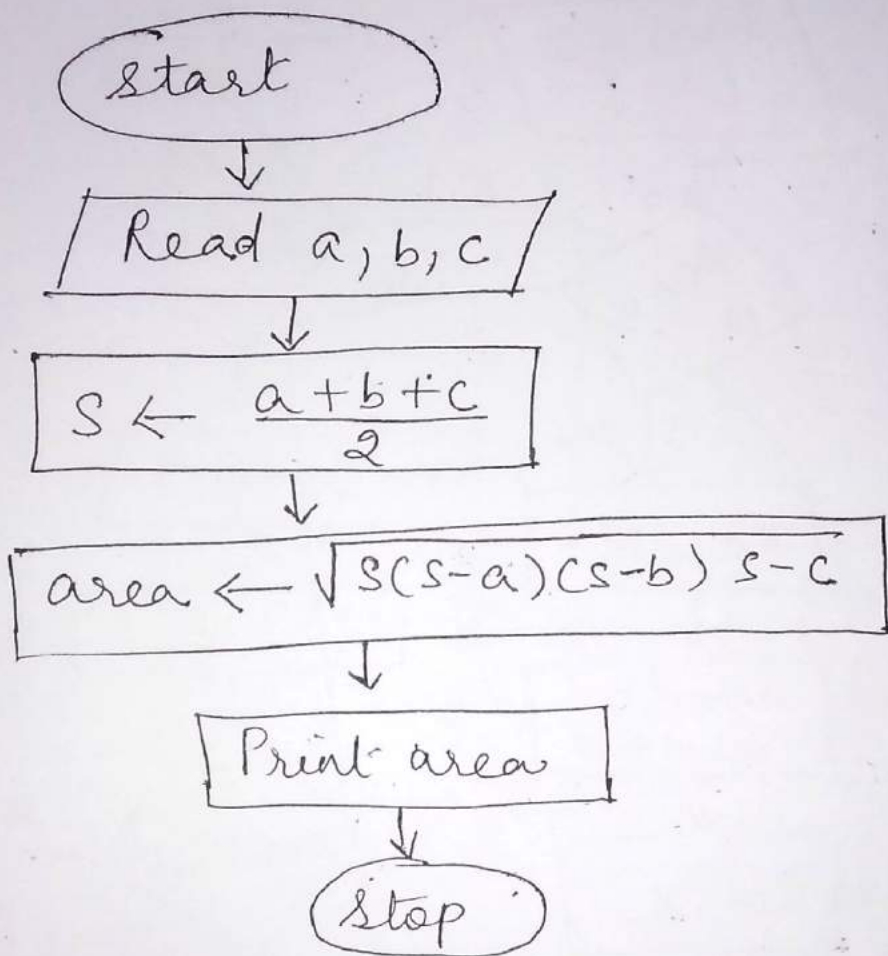 Start
Read a, b, c
S ← a+b+c/2
area ← √S(S-a)(S-b) S-c
Print area
Stop